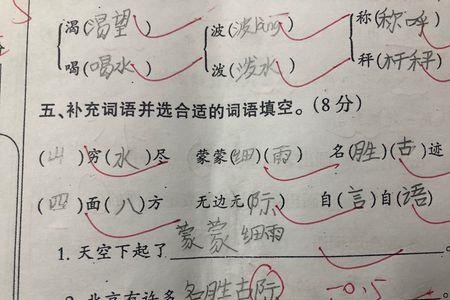 渴(渴望) 波(波làng) 称(称呼)
喝(喝水) 泼(泼水) 秤(杆秤)
五、补充词语并选合适的词语填空。(8分)
(山)穷(水)尽 蒙蒙(细)(雨) 名(胜)(古)迹
(四)面(八)方 无边无(际) 自(言)自(语)
1. 天空下起了 蒙蒙细雨
2. 北京有许多 名胜古际 -0.5